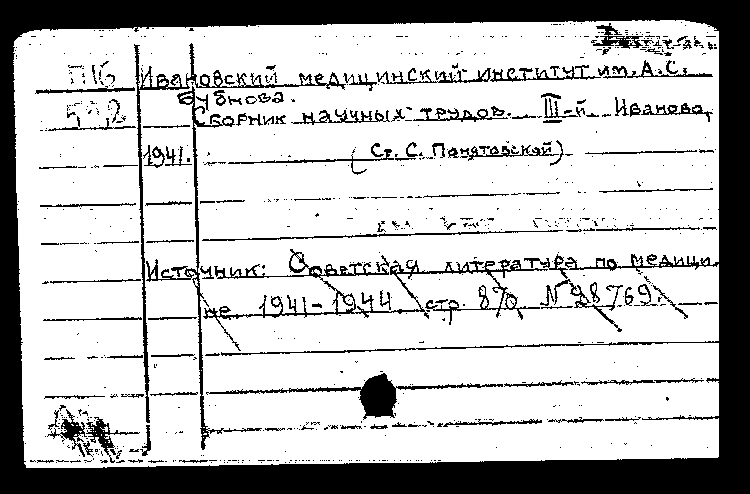 П16 Ивановский медицинский институт им. А.С.
Бубнова.
592 Сборник научных трудов. III-й. Иваново,
1941. (Ст. С. Понятовской)
Источник: Советская литература по медици
не. 1941-1944 стр. 870 N 28769.